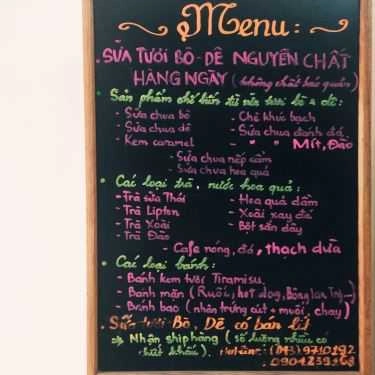 Menu:
. SỮA TƯƠI BÒ - DÊ NGUYÊN CHẤT
HÀNG NGÀY (không chất bảo quản)
. Sản phẩm chế biến từ sữa tươi bò & dê:
- Sữa chua bò - Chè khúc bạch
- Sữa chua dê - Sữa chua đánh đá
- Kem caramel - " " Mít, Đào
- Sữa chua nếp cẩm
- Sữa chua hoa quả
. Các loại trà, nước hoa quả:
- Trà sữa Thái - Hoa quả dầm
- Trà Lipton - Xoài xay đá
- Trà Xoài - Bột sắn dây
- Trà Đào
- Cafe nóng, đá, thạch dừa
. Các loại bánh:
- Bánh kem tươi Tiramisu
- Bánh mặn (Ruốc, hot dog, Bông lan Trứng...)
- Bánh bao (nhân trứng cút, muối, chay)
. Sữa tươi Bò, Dê có bán lít
=> Nhận ship hàng (số lượng nhiều có
chiết khấu). Hotline: (043) 9710192